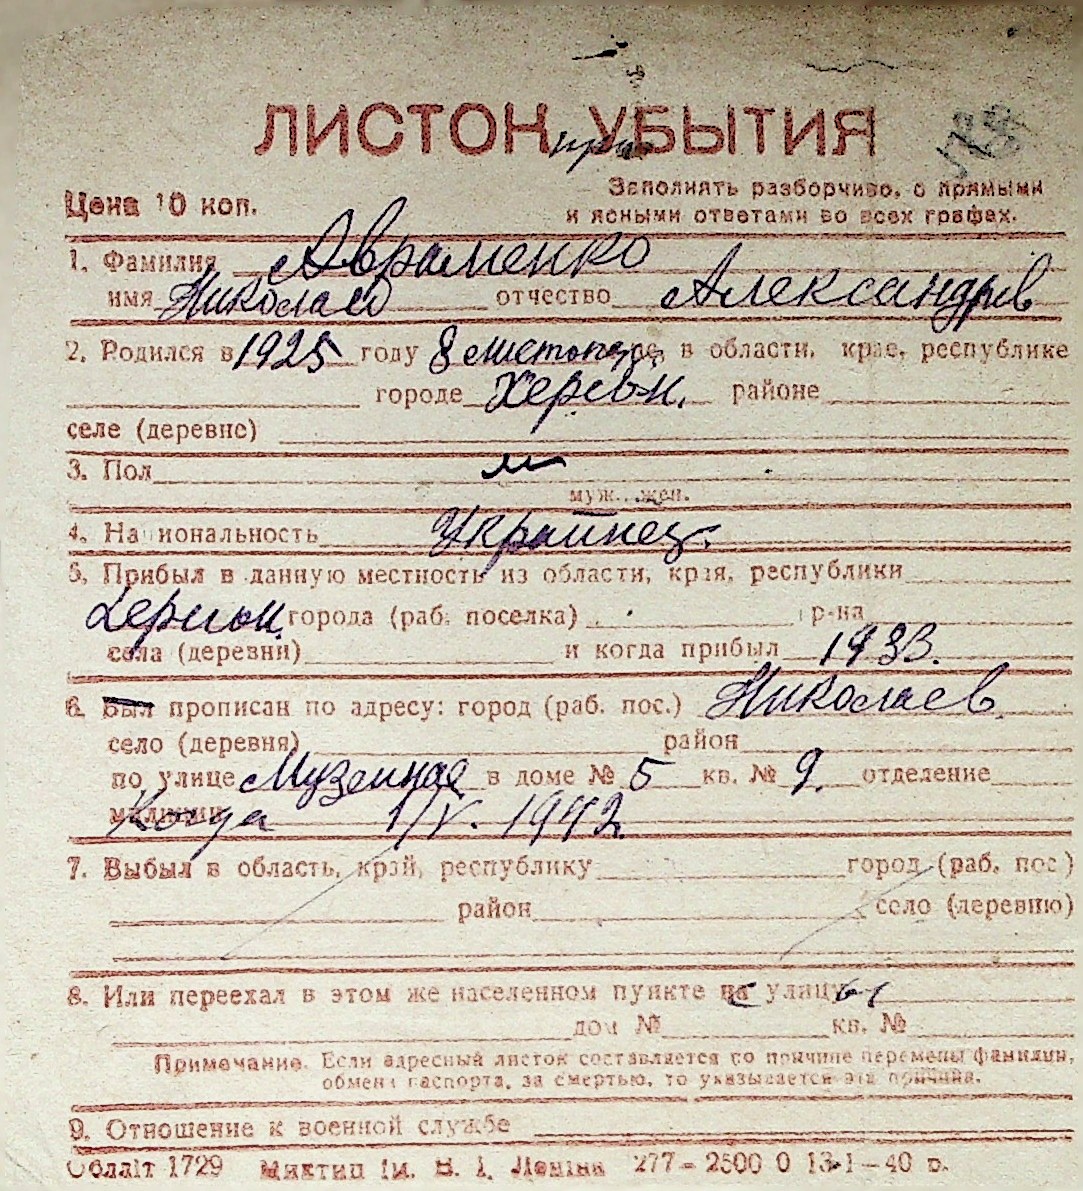 ЛИСТОК УБЫТИЯ
при
Цена 10 коп.
Заполнять разборчиво, с прямыми
и ясными ответами во всех графах.
1. Фамилия Авраменко
имя Николай отчество Александров
2. Родился в 1925 году 8 листопада, в области, крае, республике
городе Херсон. районе
селе (деревне)
3. Пол м
муж. жен.
4. Национальность Украинец.
5. Прибыл в данную местность из области, края, республики
Херсон. города (раб. поселка) р-на
села (деревни) и когда прибыл 1933.
6. Был прописан по адресу: город (раб. пос.) Николаев
село (деревня) район
по улице Музейная в доме № 5 кв. № 9. отделение
милиции Когда 1/V. 1942.
7. Выбыл в область, край, республику город (раб. пос.)
район село (деревню)
8. Или переехал в этом же населенном пункте на улицу
дом № кв. №
Примечание. Если адресный листок составляется по причине перемены фамилии,
обмена паспорта, за смертью, то указывается эта причина.
9. Отношение к военной службе
Обліт 1729 Миктип ім. В. І. Леніна 277-2500 0 13-1-40 р.